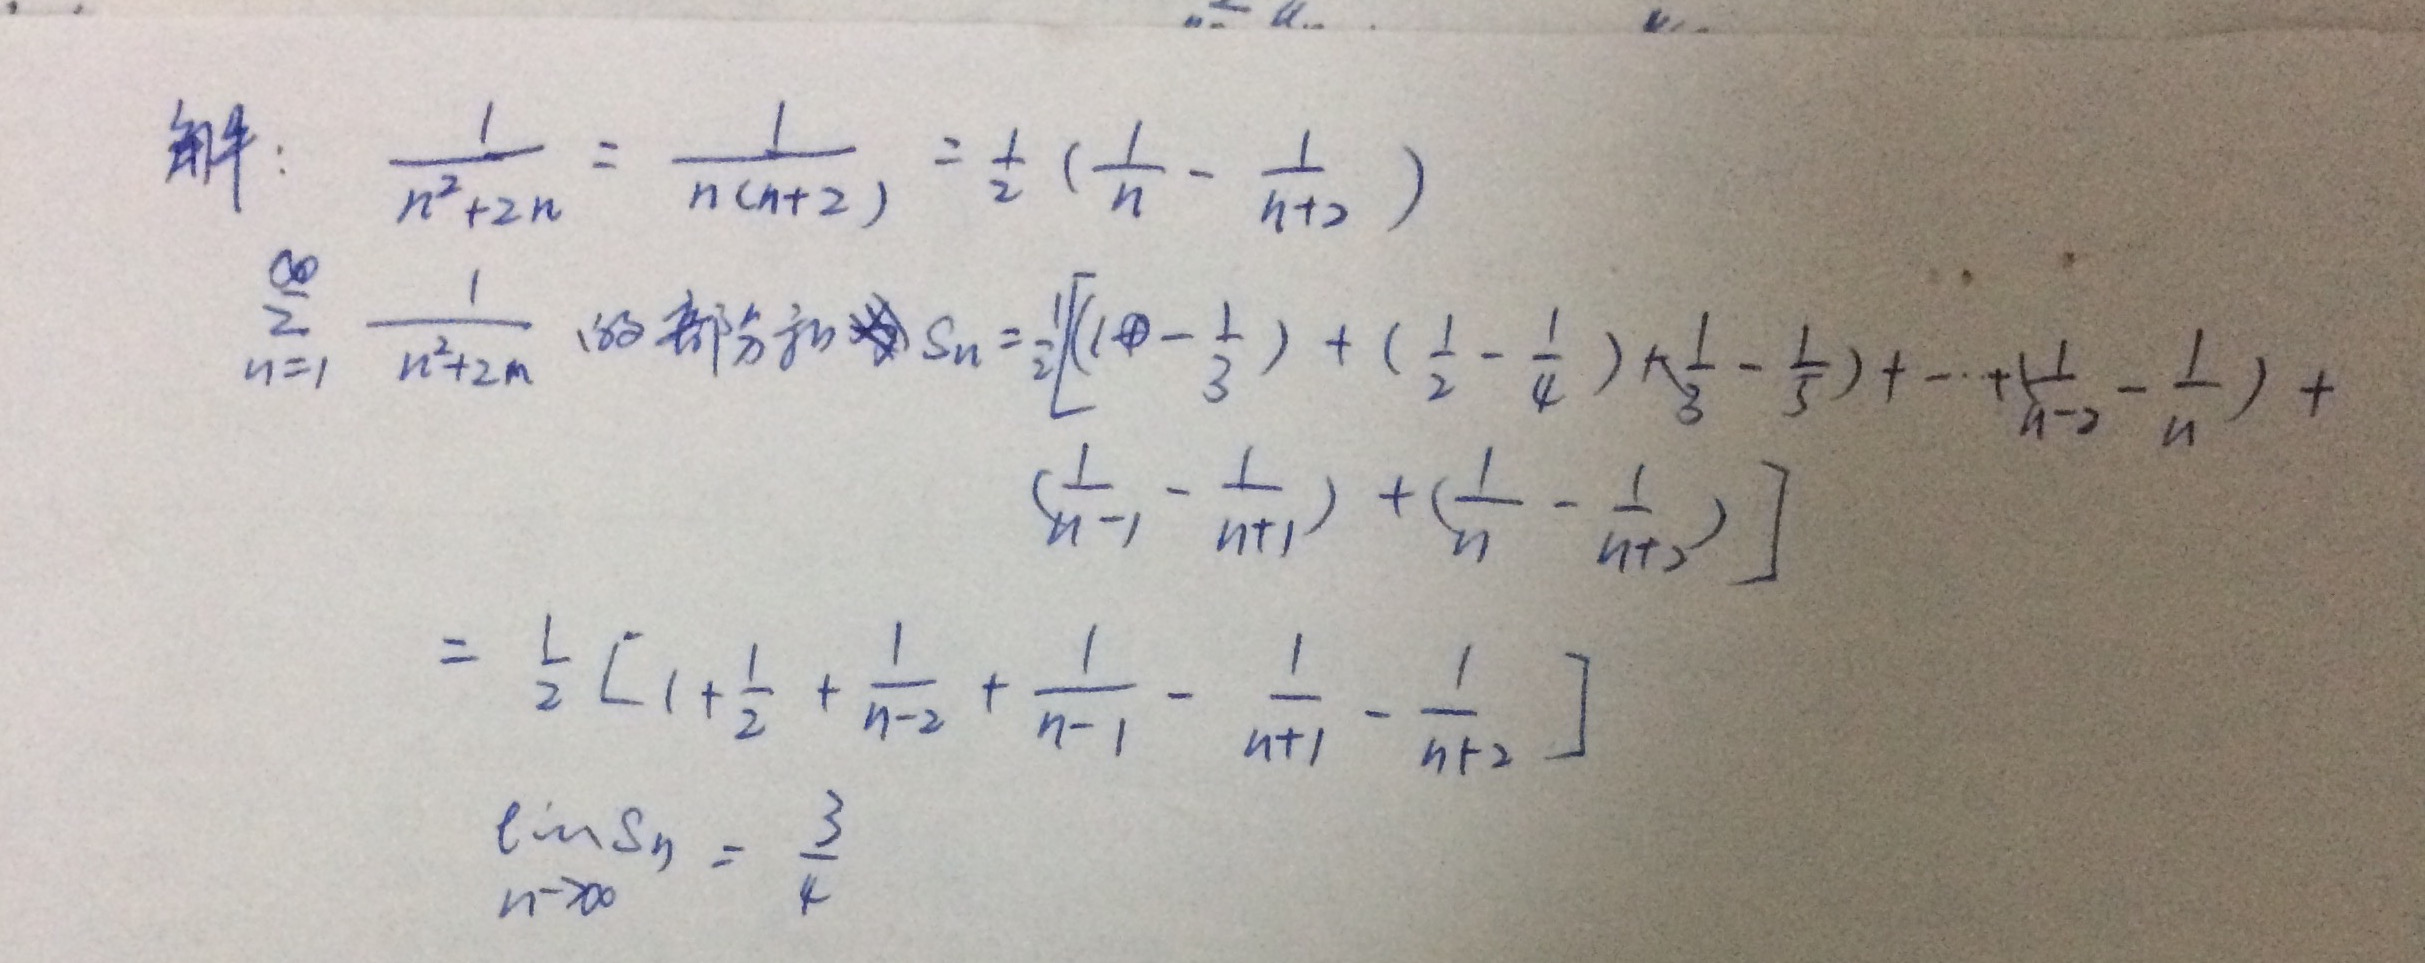 解: 1/(n²+2n) = 1/(n(n+2)) = 1/2 (1/n - 1/(n+2))
∞∑n=1 1/(n²+2n) 的部分和 Sn = 1/2[(1 - 1/3) + (1/2 - 1/4) + (1/3 - 1/5) + … + (1/(n-2) - 1/n) +
(1/(n-1) - 1/(n+1)) + (1/n - 1/(n+2))]
= 1/2 [1 + 1/2 + 1/(n-2) + 1/(n-1) - 1/(n+1) - 1/(n+2)]
lim n→∞ Sn = 3/4